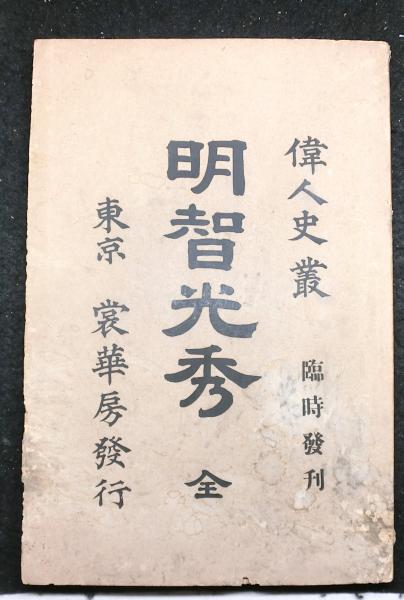 偉人史叢 臨時發刊
明智光秀 全
東京 裳華房發行